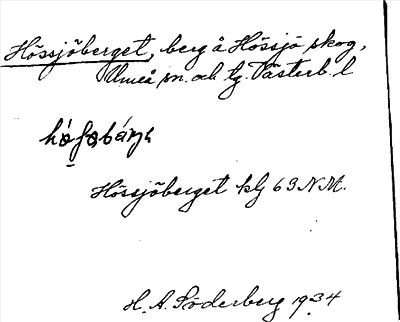 Hössjöberget, berg å Hössjö skog,
Umeå sn. och tg. Västerb. l
Hössjöberget kl 63 N.M.
H. A. Söderberg 1934